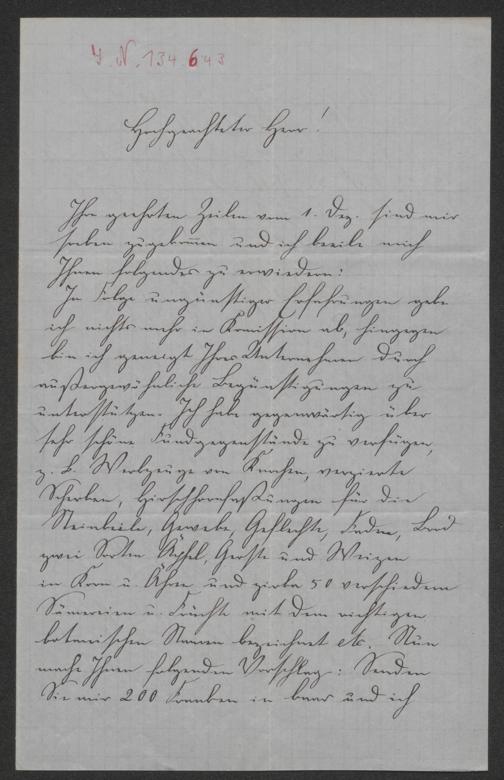 I. N. 134643
Hochgeachteter Herr!
Ihre geehrten Zeilen vom 1. Dez. sind mir
soeben zugekom̄en und ich beeile mich
Ihnen folgendes zu erwiedern:
In Folge ungünstiger Erfahrungen gebe
ich nichts mehr in Komission ab, hingegen
bin ich geneigt Ihr Unternehmen durch
außergewöhnliche Begünstigungen zu
unterstützen. Ich habe gegenwärtig über
sehr schöne Fundgegenstände zu verfügen,
z. B. Werkzeuge von Knochen, verzierte
Scherben, Hirschhornfaßungen für die
Steinbeile, Gewebe, Geflechte, Faden, Brod
zwei Sorten Äpfel, Gerste und Weizen
in Korn u. Ähren und zirka 50 verschiedene
Sämereien u. Früchte mit dem richtigen
botanischen Namen bezeichnet etc. Nun
mache Ihnen folgenden Vorschlag: Senden
Sie mir 200 Franken in baar und ich